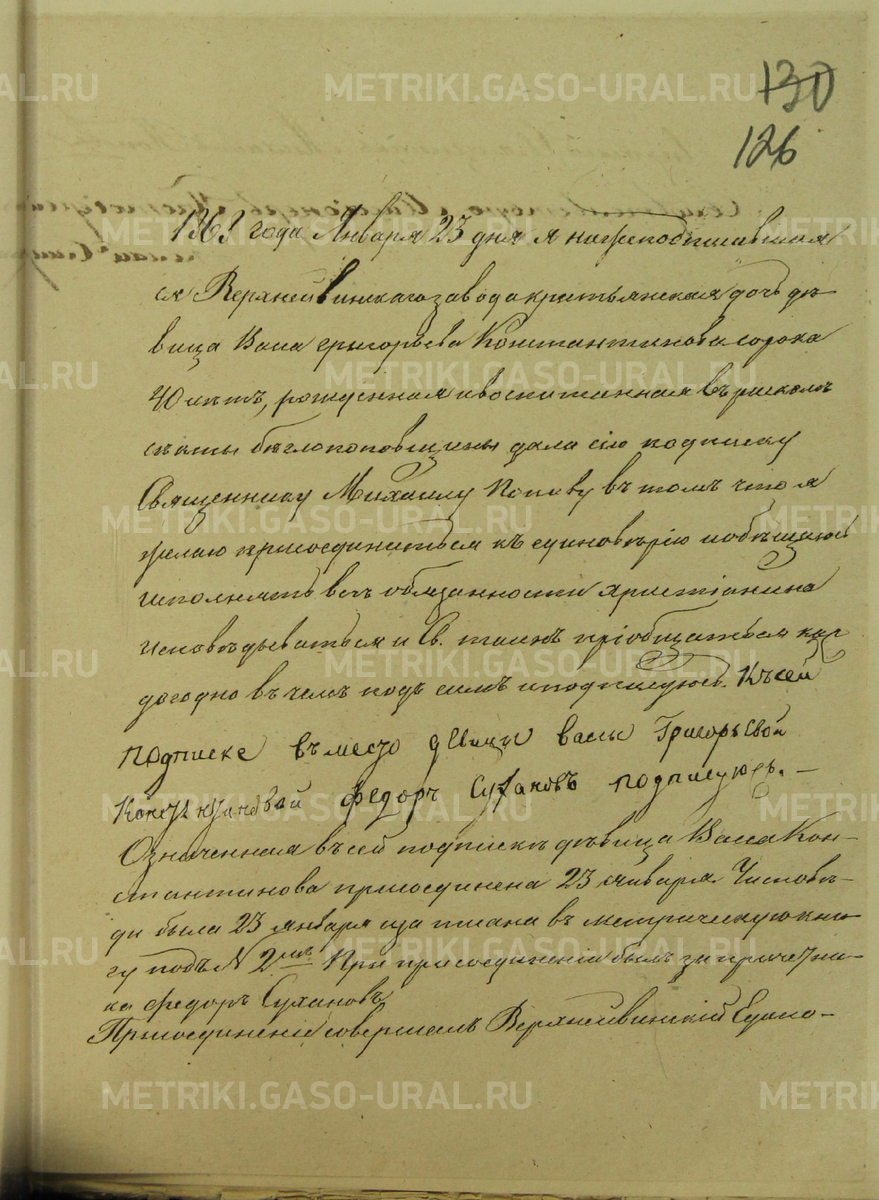 130
126
года Января 23 дня я нижеподписавшая
ся Верхнейвинскаго завода крестьянская дочь дѣ-
вица Васса Григорьева Константинова сорока
40 лѣтъ, рожденная и воспитанная въ
секты бѣглопоповщины дала сію подписку
Священнику Михаилу Попову въ томъ что я
желаю присоединиться къ единовѣрію и обѣщаюсь
исполнять всѣ обязанности христіанина
исповѣдываться и Св. таинъ пріобщаться каж
догодно въ чемъ подъ симъ и подписуюсь. Къ сей
подписке въместо девицы васы Григорьевой
Константиновой федоръ Сухановъ подписуюсь. —
Означенная въ сей подпискѣ дѣвица Васса Кон-
стантинова присоединена 23 января. У исповѣ-
ди была 23 января и записана въ метрическую кни-
гу подъ N 2мъ. При присоединеніи былъ за причетни-
ка Федоръ Сухановъ
Присоединеніе совершалъ Верхнейвинскій Едино-
METRIKI.GASO-URAL.RU